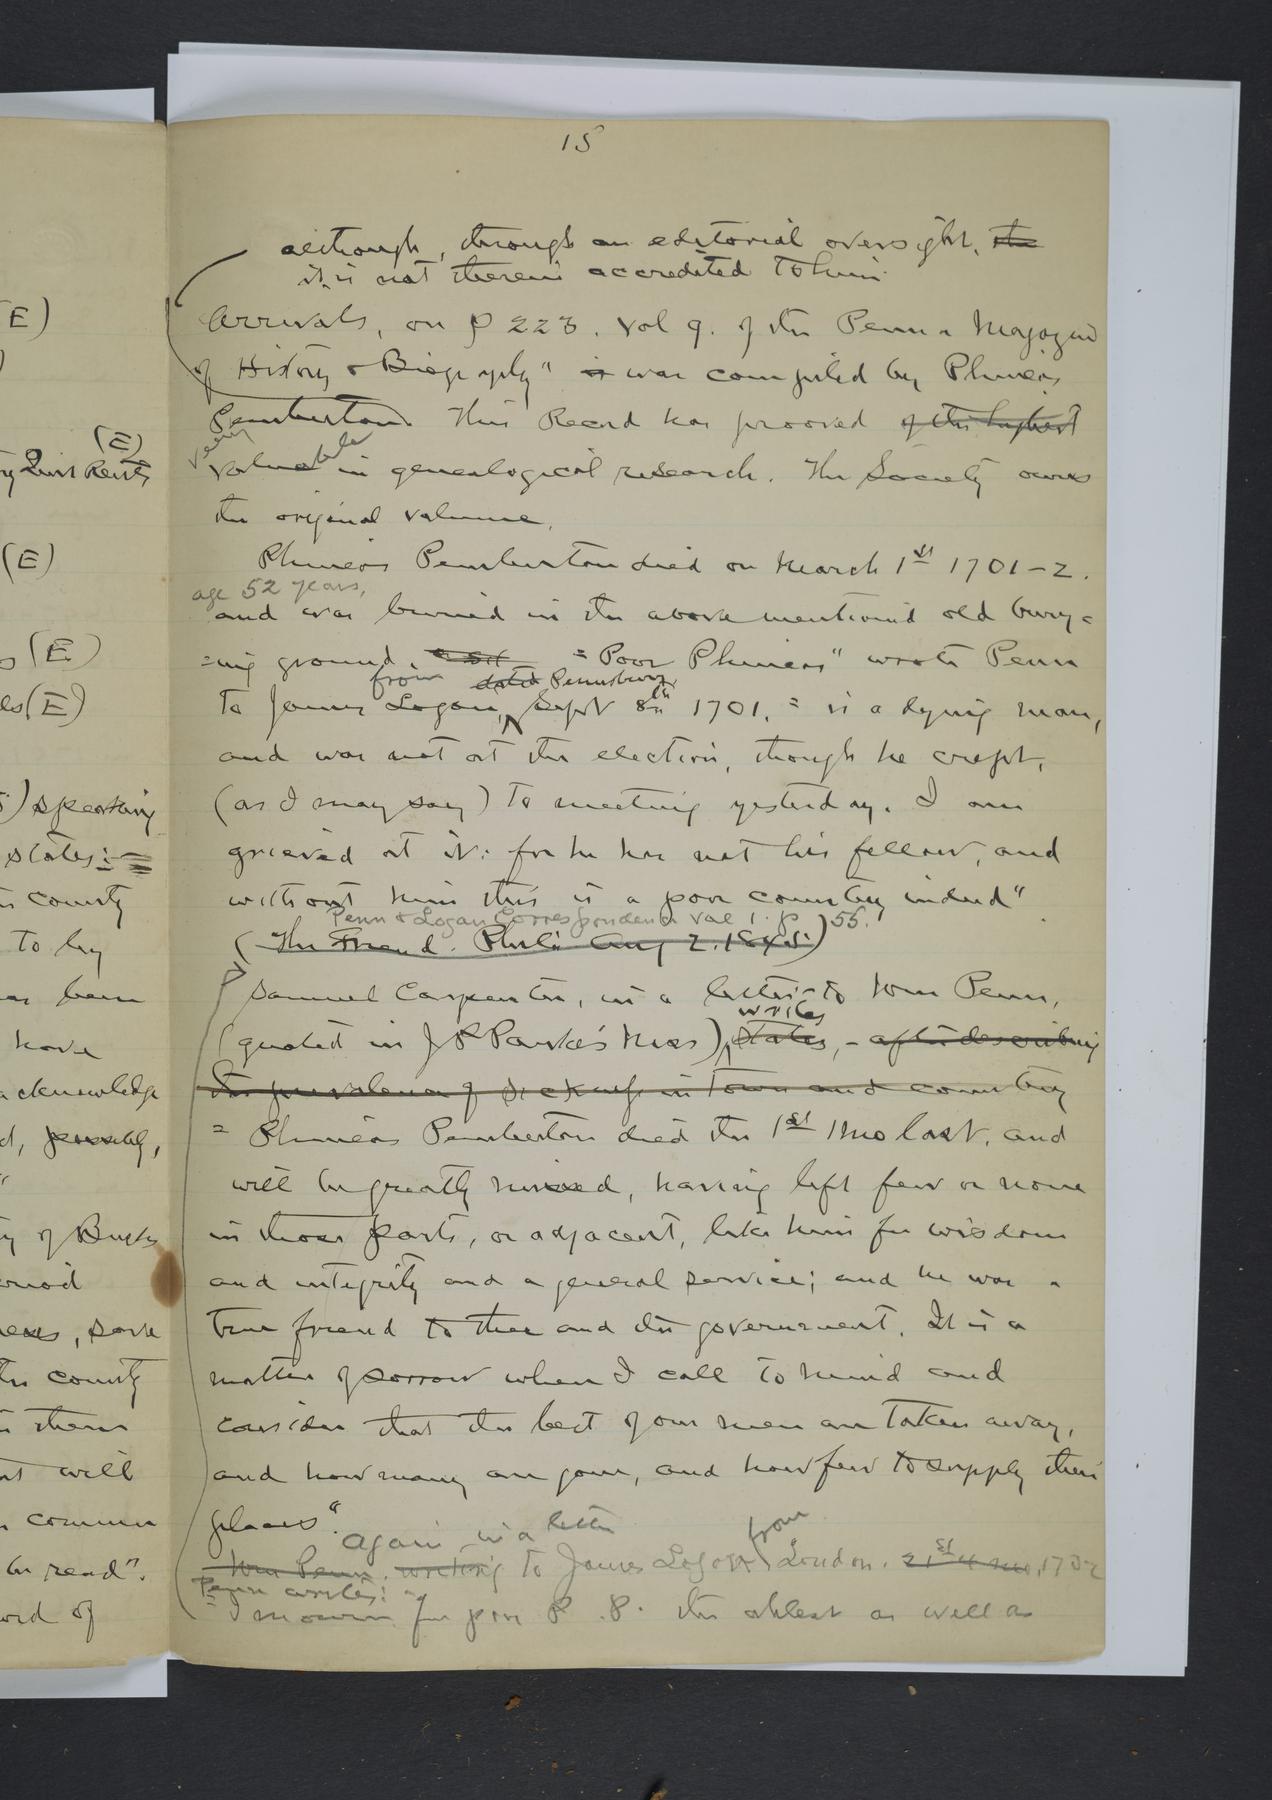 15
although, through an editorial oversight, the
it is not therein accredited to him
Arrivals, on p 223. Vol 9. of the Penna Magazine
of History & Biography" is was compiled by Phineas
Pemberton. This Record has prooved of the highest
very
valuable in genealogical research. The Society owns
the original volume.
Phineas Pemberton died on March 1st 1701-2.
age 52 years,
and was buried in the above mentioned old bury=
=ing ground. "Poor Phineas" wrote Penn
from dated Pennsbury
to James Logan, Sept 8th 1701. " is a dying man,
and was not at the election, though he crept,
(as I may say) to meeting yesterday. I am
grieved at it: for he has not his fellow, and
without him this is a poor country indeed"
Penn & Logan Correspondence Vol 1. p 55.
(The Friend. Phila Aug 2. 1845.)
Samuel Carpenter, in a letter to Wm Penn,
writes
(quoted in J P Parke's Mss) states, - after describing
the prevalence of sickness in town and country
" Phineas Pemberton died the 1st Mo last, and
will be greatly missed, having left few or none
in those parts, or adjacent, like him for wisdom
and integrity and a general service; and he was a
true friend to thee and the government. It is a
matter of sorrow when I call to mind and
consider that the best of our men are taken away,
and how many are gone, and how few to supply their
places".
Again in a letter from
Wm Penn. writing to James Logan London. 21st 4 mo, 1702
Penn writes:
"I mourn for poor P. P. the ablest as well as
(E)
(E)
Quit Rents
(E)
(E)
(E)
speaking
states:
county
to by
been
have
acknowledge
possibly,
of Bucks
period
, save
the county
them
will
common
be read".
of